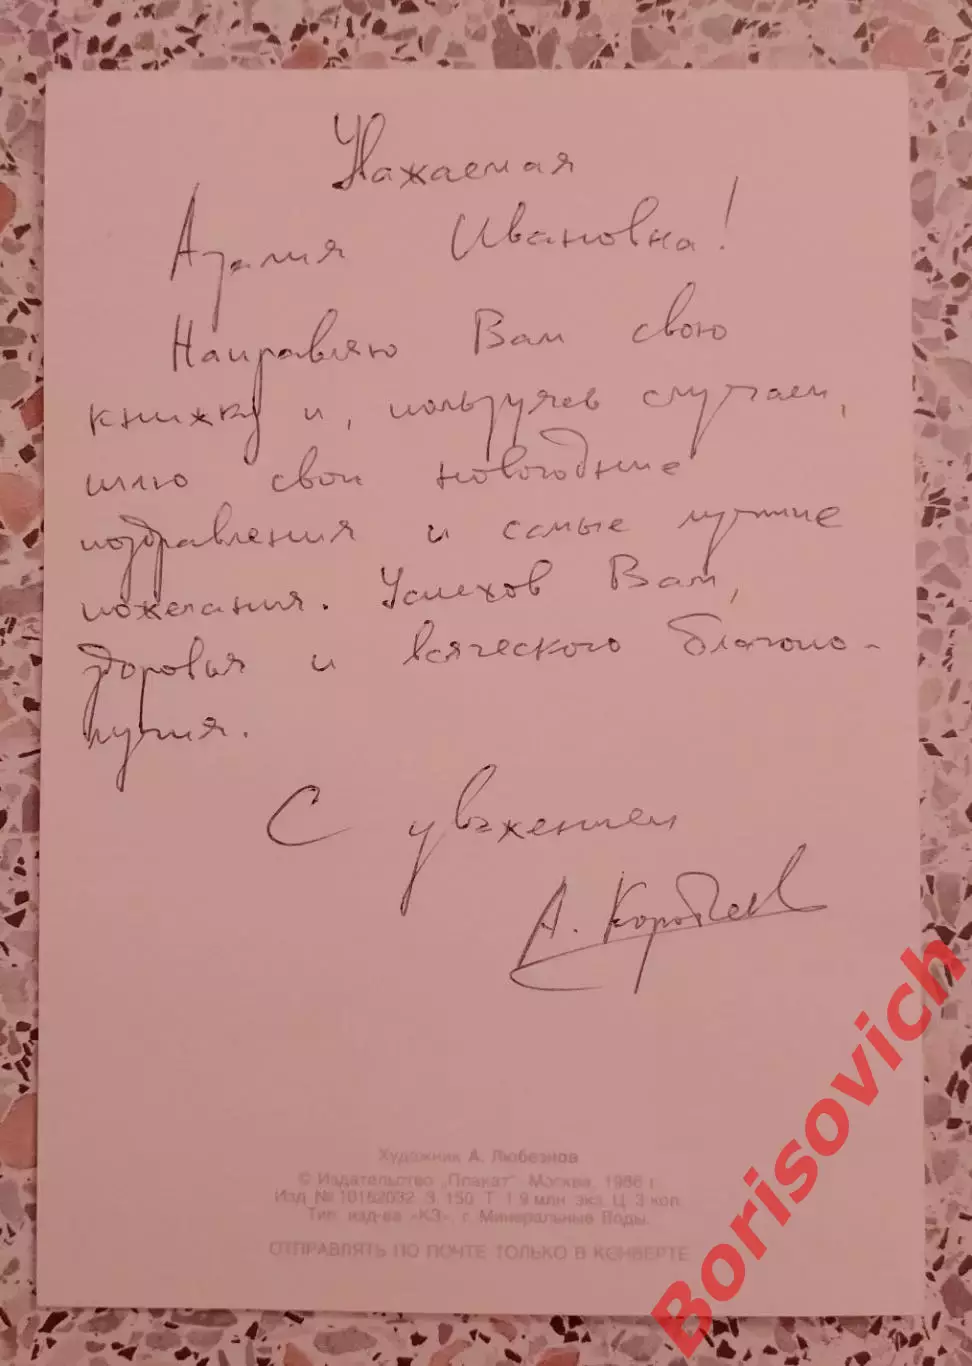 Уважаемая
Азалия Ивановна!
Направляю Вам свою
книжку и, пользуясь случаем,
шлю свои новогодние
поздравления и самые лучшие
пожелания. Успехов Вам,
здоровья и всяческого благопо-
лучия.
С уважением
А.
Художник А. Любезнов
© Издательство „Плакат“ Москва, 1986 г.
Изд. № 10182032 З. 150. Т. 1.9 млн. экз. Ц. 3 коп.
Тип. изд-ва «КЗ», г. Минеральные Воды.
ОТПРАВЛЯТЬ ПО ПОЧТЕ ТОЛЬКО В КОНВЕРТЕ
Borisovich